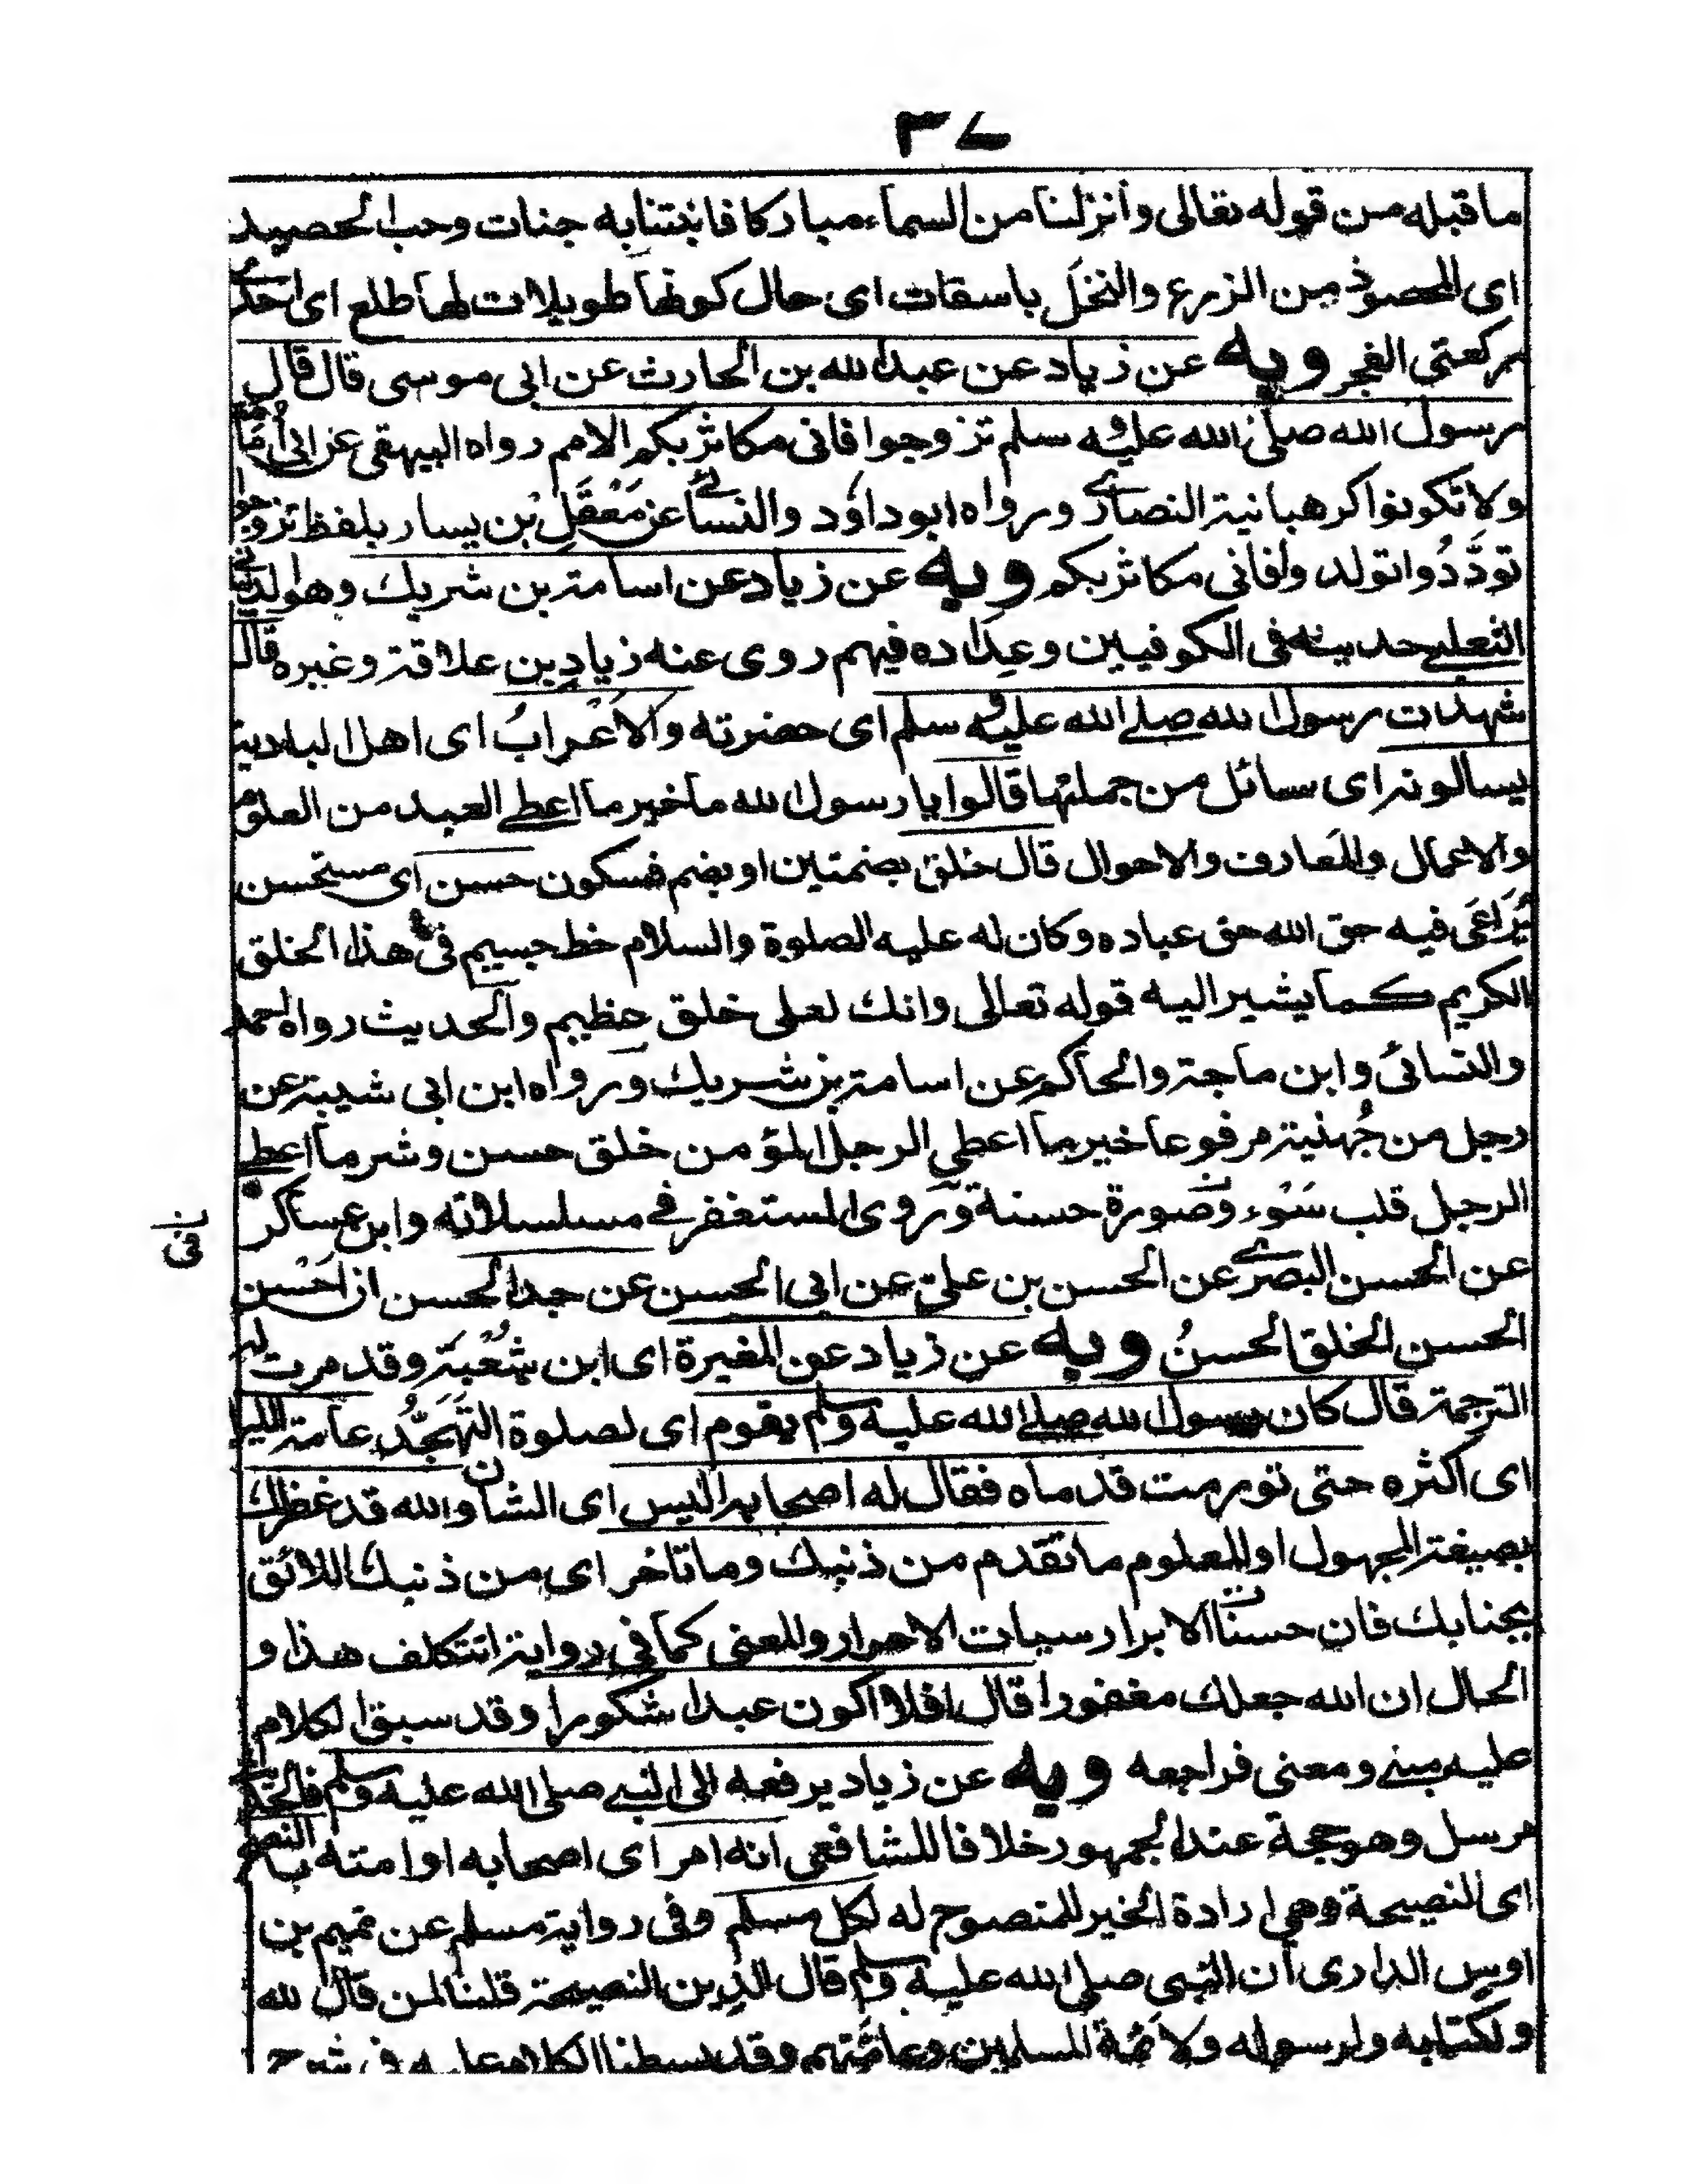 ٣٧
ما قبله من قوله تعالى وأنزلنا من السماء مباركا فانبتنا به جنات وحب الحصيد
اى المحصود من الزرع والنخل باسقات اى حال كونها طويلات لها طلع اى احد
ركعتى الفجر وبه عن زياد عن عبد الله بن الحارث عن ابى موسى قال قال
رسول الله صلى الله عليه وسلم تزوجوا فانى مكاثر بكم الامم رواه البيهقى عن ابى أمامة
ولا تكونوا كرهبانية النصارى ورواه ابو داؤد والنسائى عن مَعْقَلِ بْن يسار بلفظ تزوجوا
تودَّدُوا تولد وا فانى مكاثر بكم وبه عن زياد عن اسامة بن شريك وهو
الثعلبى حديثه فى الكوفيين وعِدَاده فيهم روى عنه زياد بن علاقة وغيره قال
شهدت رسول الله صلى الله عليه وسلم اى حضرته والاَعْرابُ اى اهل البادية
يسالونه اى سائل من جملتها قالوا يا رسول الله ما خير ما اعطى العبد من العلوم
والاعمال والمعارف والاحوال قال خلق بضمتين او بضم فسكون حسن اى مستحسن
يُرَاعَى فيه حق الله حق عباده وكان له عليه الصلوة والسلام خط جسيم فى هذا الخلق
الكريم كما يشير اليه قوله تعالى وانك لعلى خلق عظيم والحديث رواه احمد
والنسائى وابن ماجة والحاكم عن اسامة بن شريك ورواه ابن ابى شيبة عن
رجل من جُهنية مرفوعا خير ما اعطي الرجل المؤمن خلق حسن وشر ما اعطى
الرجل قلب سَوْء وصورة حسنة وروى المستغفر فى مسلسلاته وابن عساكر
فى
عن الحسن البصرى عن الحسن بن علىّ عن ابى الحسن عن جد الحسن ان احْسن
الحسن الخلق الحسنُ وبه عن زياد عن المغيرة اى ابن شُعْبَة وقد مرت له
الترجمة قال كان رسول الله صلى الله عليه وسلم يقوم اى لصلوة التَهَجُّد عامة الليل
اى اكثره حتى تورمت قدماه فقال له اصحابه اليس اى الشان والله قد غفر لك
بصيغة المجهول او المعلوم ما تقدم من ذنبك وما تاخر اى من ذنبك اللائق
بجنابك فان حسنات الابرار سيات الاحرار والمعنى كما فى رواية اتتكلف هذا و
الحال ان الله جعلك مغفورا قال افلا اكون عبدا شكورا وقد سبق الكلام
عليه مبنى ومعنى فراجعه وبه عن زياد يرفعه الى النبى صلى الله عليه وسلم فالحديث
مرسل وهو حجة عند الجمهور خلافا للشافعى انه امر اى اصحابه او امته بالنصح
اى النصيحة وهى ارادة الخير للمنصوح له لكل مسلم وفى رواية مسلم عن تميم بن
اويس الدارى أن النبى صلى الله عليه وسلم قال الدين النصيحة قلنا لمن قال لله
ولكتابه ولرسوله ولائمة المسلمين وعامّتهم وقد بسطنا الكلام عليه فى شرح